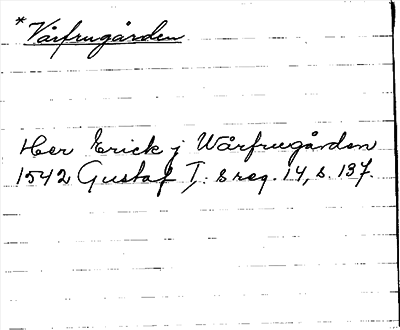 * Vårfrugården
Her Erick j Wårfrugården
1542 Gustaf I: s reg. 14, s. 137.